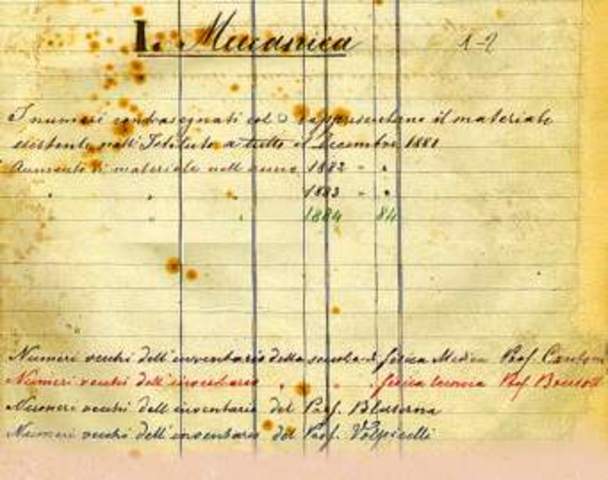 I. Meccanica 1-2
I numeri contrassegnati col o rappresentano il materiale
esistente nell'Istituto a tutto il Decembre 1881
Aumento di materiale nell'anno 1882 " "
" " " 1883 " "
" " 1884 84
Numeri vecchi dell'inventario della scuola di fisica Medica Prof. Cantoni
Numeri vecchi dell'inventario " " fisica tecnica Prof.
Numeri vecchi dell'inventario del Prof. Blaserna
Numeri vecchi dell'inventario del Prof. Volpicelli